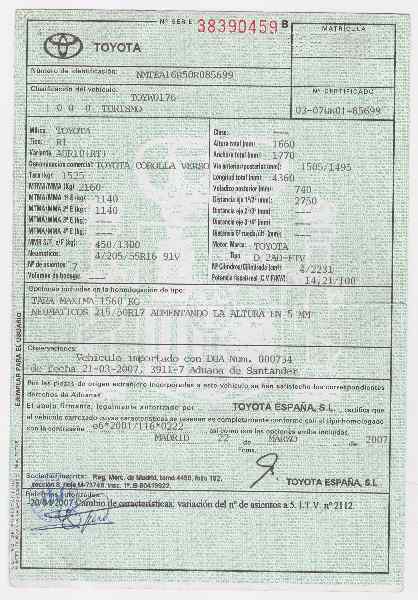 Nº SERIE 38390459 B
MATRICULA
TOYOTA
Número de identificación: NMTEA16R50R085699
Clasificación del vehículo: TOYW0176
1 0 0 0 TURISMO
Nº CERTIFICADO
03-070R01-85699
Marca TOYOTA
Tipo R1
Variante AUR10(RT)
Denominación comercial TOYOTA COROLLA VERSO
Tara (kg) 1525
MTMA/MMA (kg) 2160
MTMA/MMA 1ª E (kg): 1140
MTMA/MMA 2ª E (kg): 1140
MTMA/MMA 3ª E (kg): ----
MTMA/MMA 4ª E (kg): ----
MMR S/F, c/F (kg) 450/1300
Neumaticos: 4/205/55R16 91V
Nº de asientos: 7
Volumen de bodega: ----
Clase: ----
Altura total (mm) 1660
Anchura total (mm) 1770
Via anterior/posterior (mm): 1505/1495
Longitud total (mm) 4360
Voladizo posterior (mm) 740
Distancia eje 1º/2º (mm) 2750
Distancia eje 2º-3º (mm) ----
Distancia eje 3º-4º (mm) ----
Motor: Marca: TOYOTA
Tipo D 2AD-FTV
Nº Cilindros/Cilindrada (cm³) 4/2231
Potencia fiscal/real (C.V.F/KW) 14,21/100
Opciones incluidas en la homologación de tipo:
TARA MAXIMA 1560 KG
NEUMATICOS 215/50R17 AUMENTANDO LA ALTURA EN 5 MM
Observaciones:
Vehículo importado con DUA Num. 000734
de fecha 21-03-2007, 3911-7 Aduana de Santander
Por las piezas de origen extranjero incorporadas a este vehículo se han satisfecho los correspondientes
derechos de Aduanas
El abajo firmante, legalmente autorizado por TOYOTA ESPAÑA, S.L. certifica que
el vehículo carrozado cuyas características se reseñan es completamente conforme con el tipo homologado
con la contraseña e6*2001/116*0222 así como con las opciones arriba incluidas.
MADRID 22 de MARZO de 2007
Firma:
TOYOTA ESPAÑA, S.L.
Sociedad inscrita: Reg. Merc. de Madrid, tomo 4450, folio 192,
sección 8, hoja M-73748. Insc. 1ª. B-80419922.
Reformas autorizadas:
20/04/2007 Cambio de características, variación del nº de asientos a 5. I.T.V. nº 2112.
EJEMPLAR PARA EL USUARIO